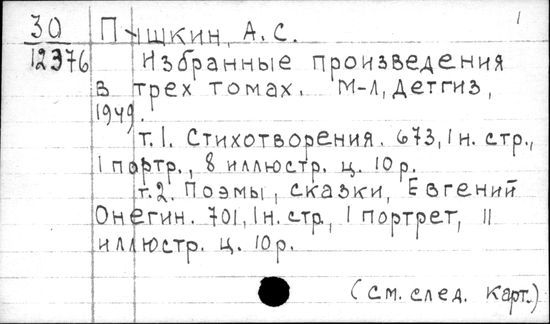 30 Пушкин, А.С. 1
12376 Избранные произведения
в трех томах. М-Л, Детгиз,
1949.
т.1. Стихотворения. 673, 1н. стр.,
1 портр., 8 иллюстр. ц. 10р.
т.2. Поэмы, сказки, Евгений
Онегин. 701, 1н. стр, 1 портрет, 11
иллюстр. ц. 10р.
(см. след. карт.)